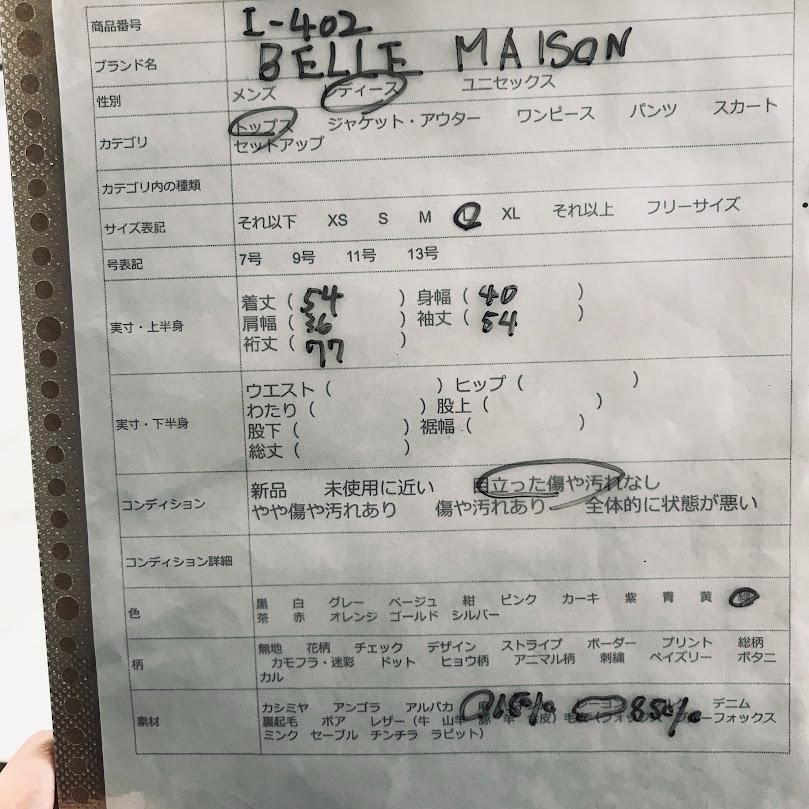 商品番号 I-402
ブランド名 BELLE MAISON
性別 メンズ ディース ユニセックス
カテゴリ トップス ジャケット・アウター ワンピース パンツ スカート
セットアップ
カテゴリ内の種類
サイズ表記 それ以下 XS S M L XL それ以上 フリーサイズ
号表記 7号 9号 11号 13号
実寸・上半身 着丈 ( 54 ) 身幅 ( 40 )
肩幅 ( 36 ) 袖丈 ( 54 )
裄丈 ( 77 )
実寸・下半身 ウエスト ( ) ヒップ ( )
わたり ( ) 股上 ( )
股下 ( ) 裾幅 ( )
総丈 ( )
コンディション 新品 未使用に近い 目立った傷や汚れなし
やや傷や汚れあり 傷や汚れあり 全体的に状態が悪い
コンディション詳細
色 黒 白 グレー ベージュ 紺 ピンク カーキ 紫 青 黄
茶 赤 オレンジ ゴールド シルバー
柄 無地 花柄 チェック デザイン ストライプ ボーダー プリント 総柄
カモフラ・迷彩 ドット ヒョウ柄 アニマル柄 刺繍 ペイズリー ボタニ
カル
素材 カシミヤ アンゴラ アルパカ 15% 85% デニム
裏起毛 ボア レザー (牛 山羊 豚 羊 皮) 毛皮 (フォックス フォックス
ミンク セーブル チンチラ ラビット)